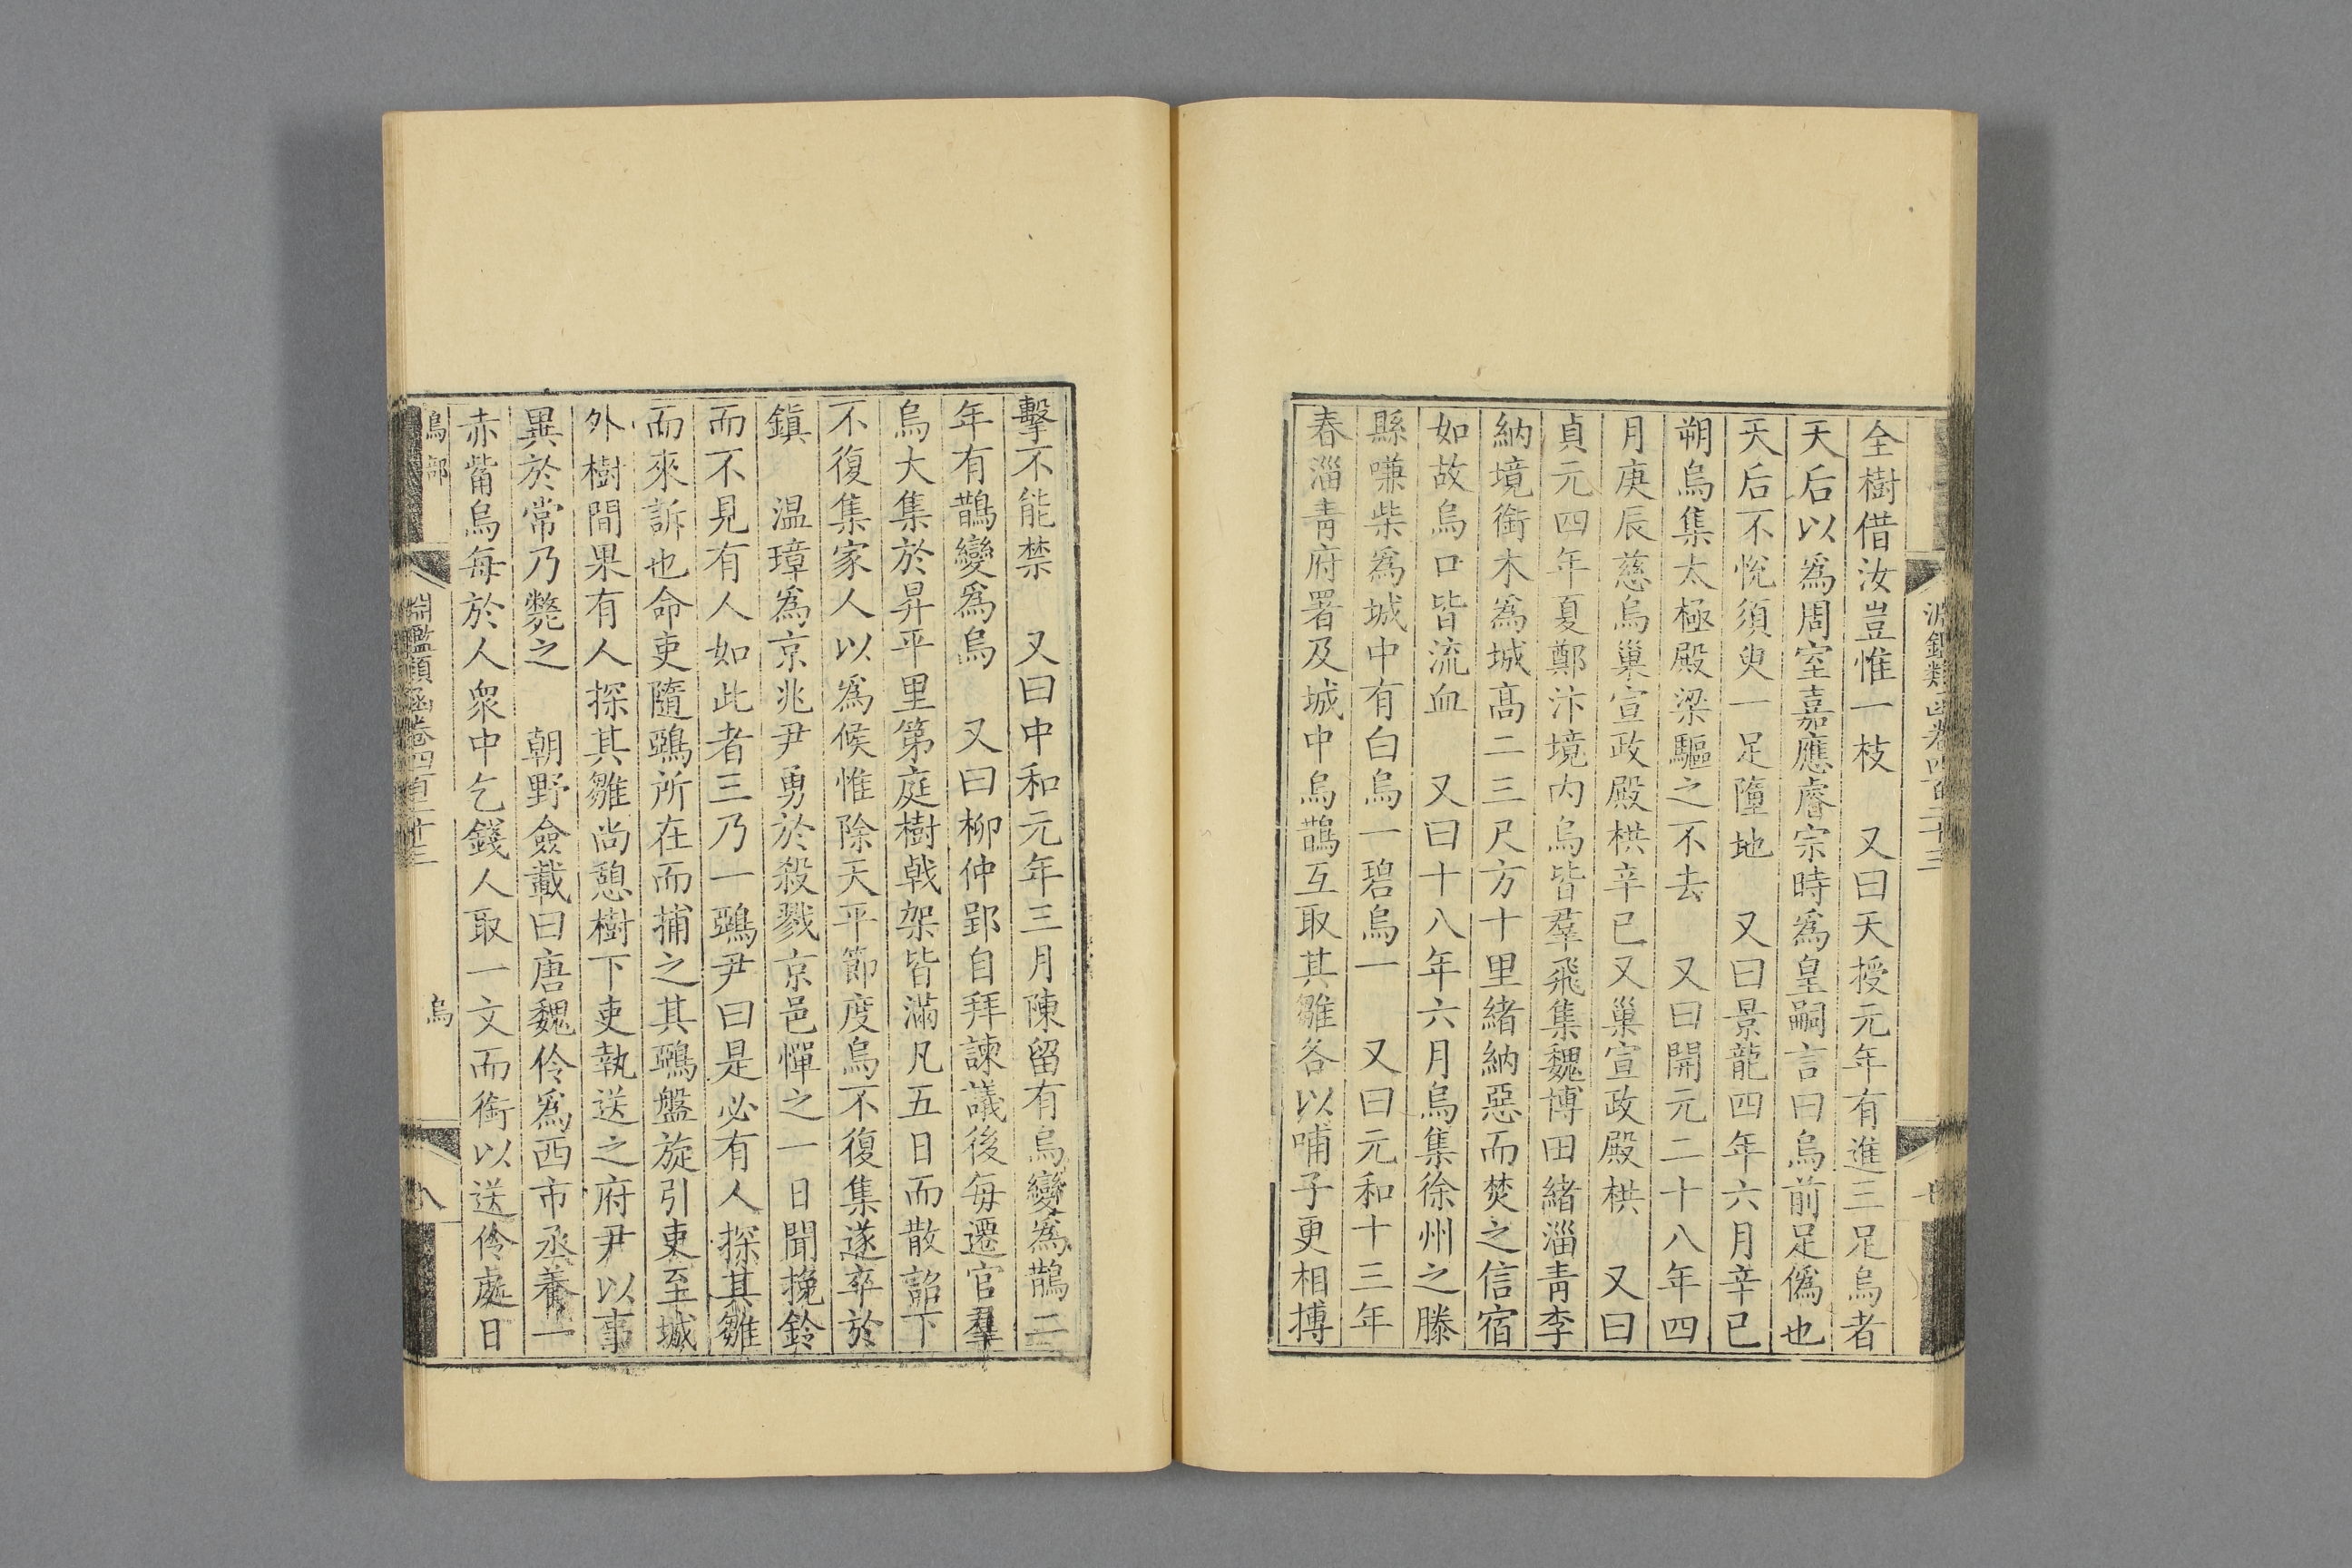 淵鑑類函卷四百二十三
全樹借汝豈惟一枝　又曰天授元年有進三足烏者
天后以爲周室嘉應睿宗時爲皇嗣言曰烏前足僞也
天后不悅須臾一足墮地　又曰景龍四年六月辛巳
朔烏集太極殿梁驅之不去　又曰開元二十八年四
月庚辰慈烏巢宣政殿栱辛巳又巢宣政殿栱　又曰
貞元四年夏鄭汴境内烏皆羣飛集魏博田緒淄青李
納境銜木爲城高二三尺方十里緒納惡而焚之信宿
如故烏口皆流血　又曰十八年六月烏集徐州之滕
縣嗛柴爲城中有白烏一碧烏一　又曰元和十三年
春淄青府署及城中烏鵲互取其雛各以哺子更相搏
擊不能禁　又曰中和元年三月陳留有烏變爲鵲二
年有鵲變爲烏　又曰柳仲郢自拜諫議後每遷官羣
烏大集於昇平里第庭樹戟架皆滿凡五日而散詔下
不復集家人以爲候惟除天平節度烏不復集遂卒於
鎮　温璋爲京兆尹勇於殺戮京邑憚之一日聞挽鈴
而不見有人如此者三乃一鵶尹曰是必有人探其雛
而來訴也命吏隨鵶所在而捕之其鵶盤旋引吏至城
外樹間果有人探其雛尚憩樹下吏執送之府尹以事
異於常乃斃之　朝野僉載曰唐魏伶爲西市丞養一
赤觜烏每於人衆中乞錢人取一文而銜以送伶處日
鳥部　淵鑑類函卷四百二十三　烏　八